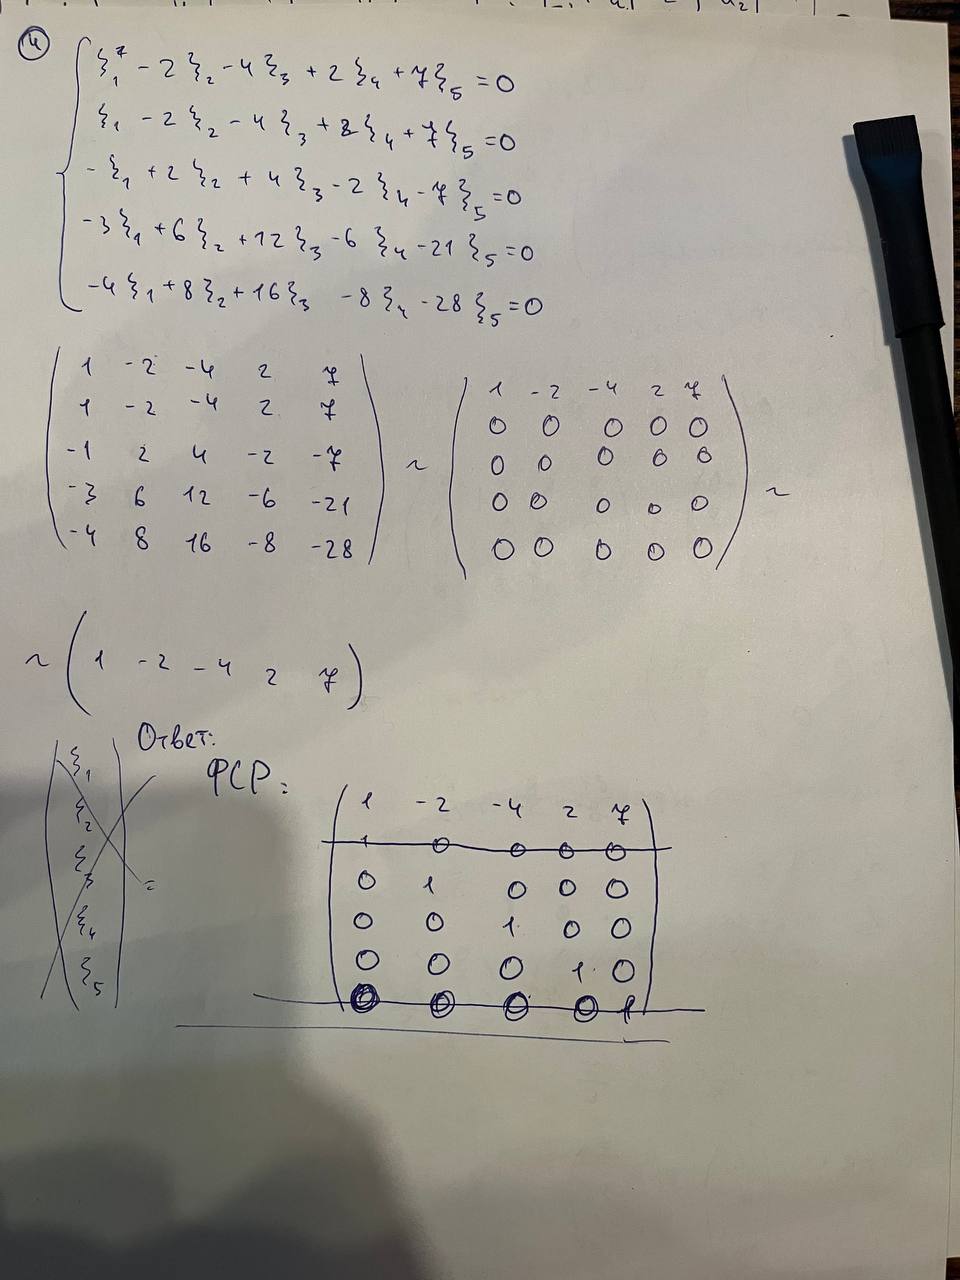 ④
ξ₁ - 2ξ₂ - 4ξ₃ + 2ξ₄ + 7ξ₅ = 0
ξ₁ - 2ξ₂ - 4ξ₃ + 2ξ₄ + 7ξ₅ = 0
-ξ₁ + 2ξ₂ + 4ξ₃ - 2ξ₄ - 7ξ₅ = 0
-3ξ₁ + 6ξ₂ + 12ξ₃ - 6ξ₄ - 21ξ₅ = 0
-4ξ₁ + 8ξ₂ + 16ξ₃ - 8ξ₄ - 28ξ₅ = 0
1 -2 -4 2 7
1 -2 -4 2 7
-1 2 4 -2 -7
-3 6 12 -6 -21
-4 8 16 -8 -28
~
1 -2 -4 2 7
0 0 0 0 0
0 0 0 0 0
0 0 0 0 0
0 0 0 0 0
~
~ (1 -2 -4 2 7)
Ответ:
ξ₁
ξ₂
ξ₃
ξ₄
ξ₅
=
ФСР =
1 -2 -4 2 7
1 0 0 0 0
0 1 0 0 0
0 0 1 0 0
0 0 0 1 0
0 0 0 0 1